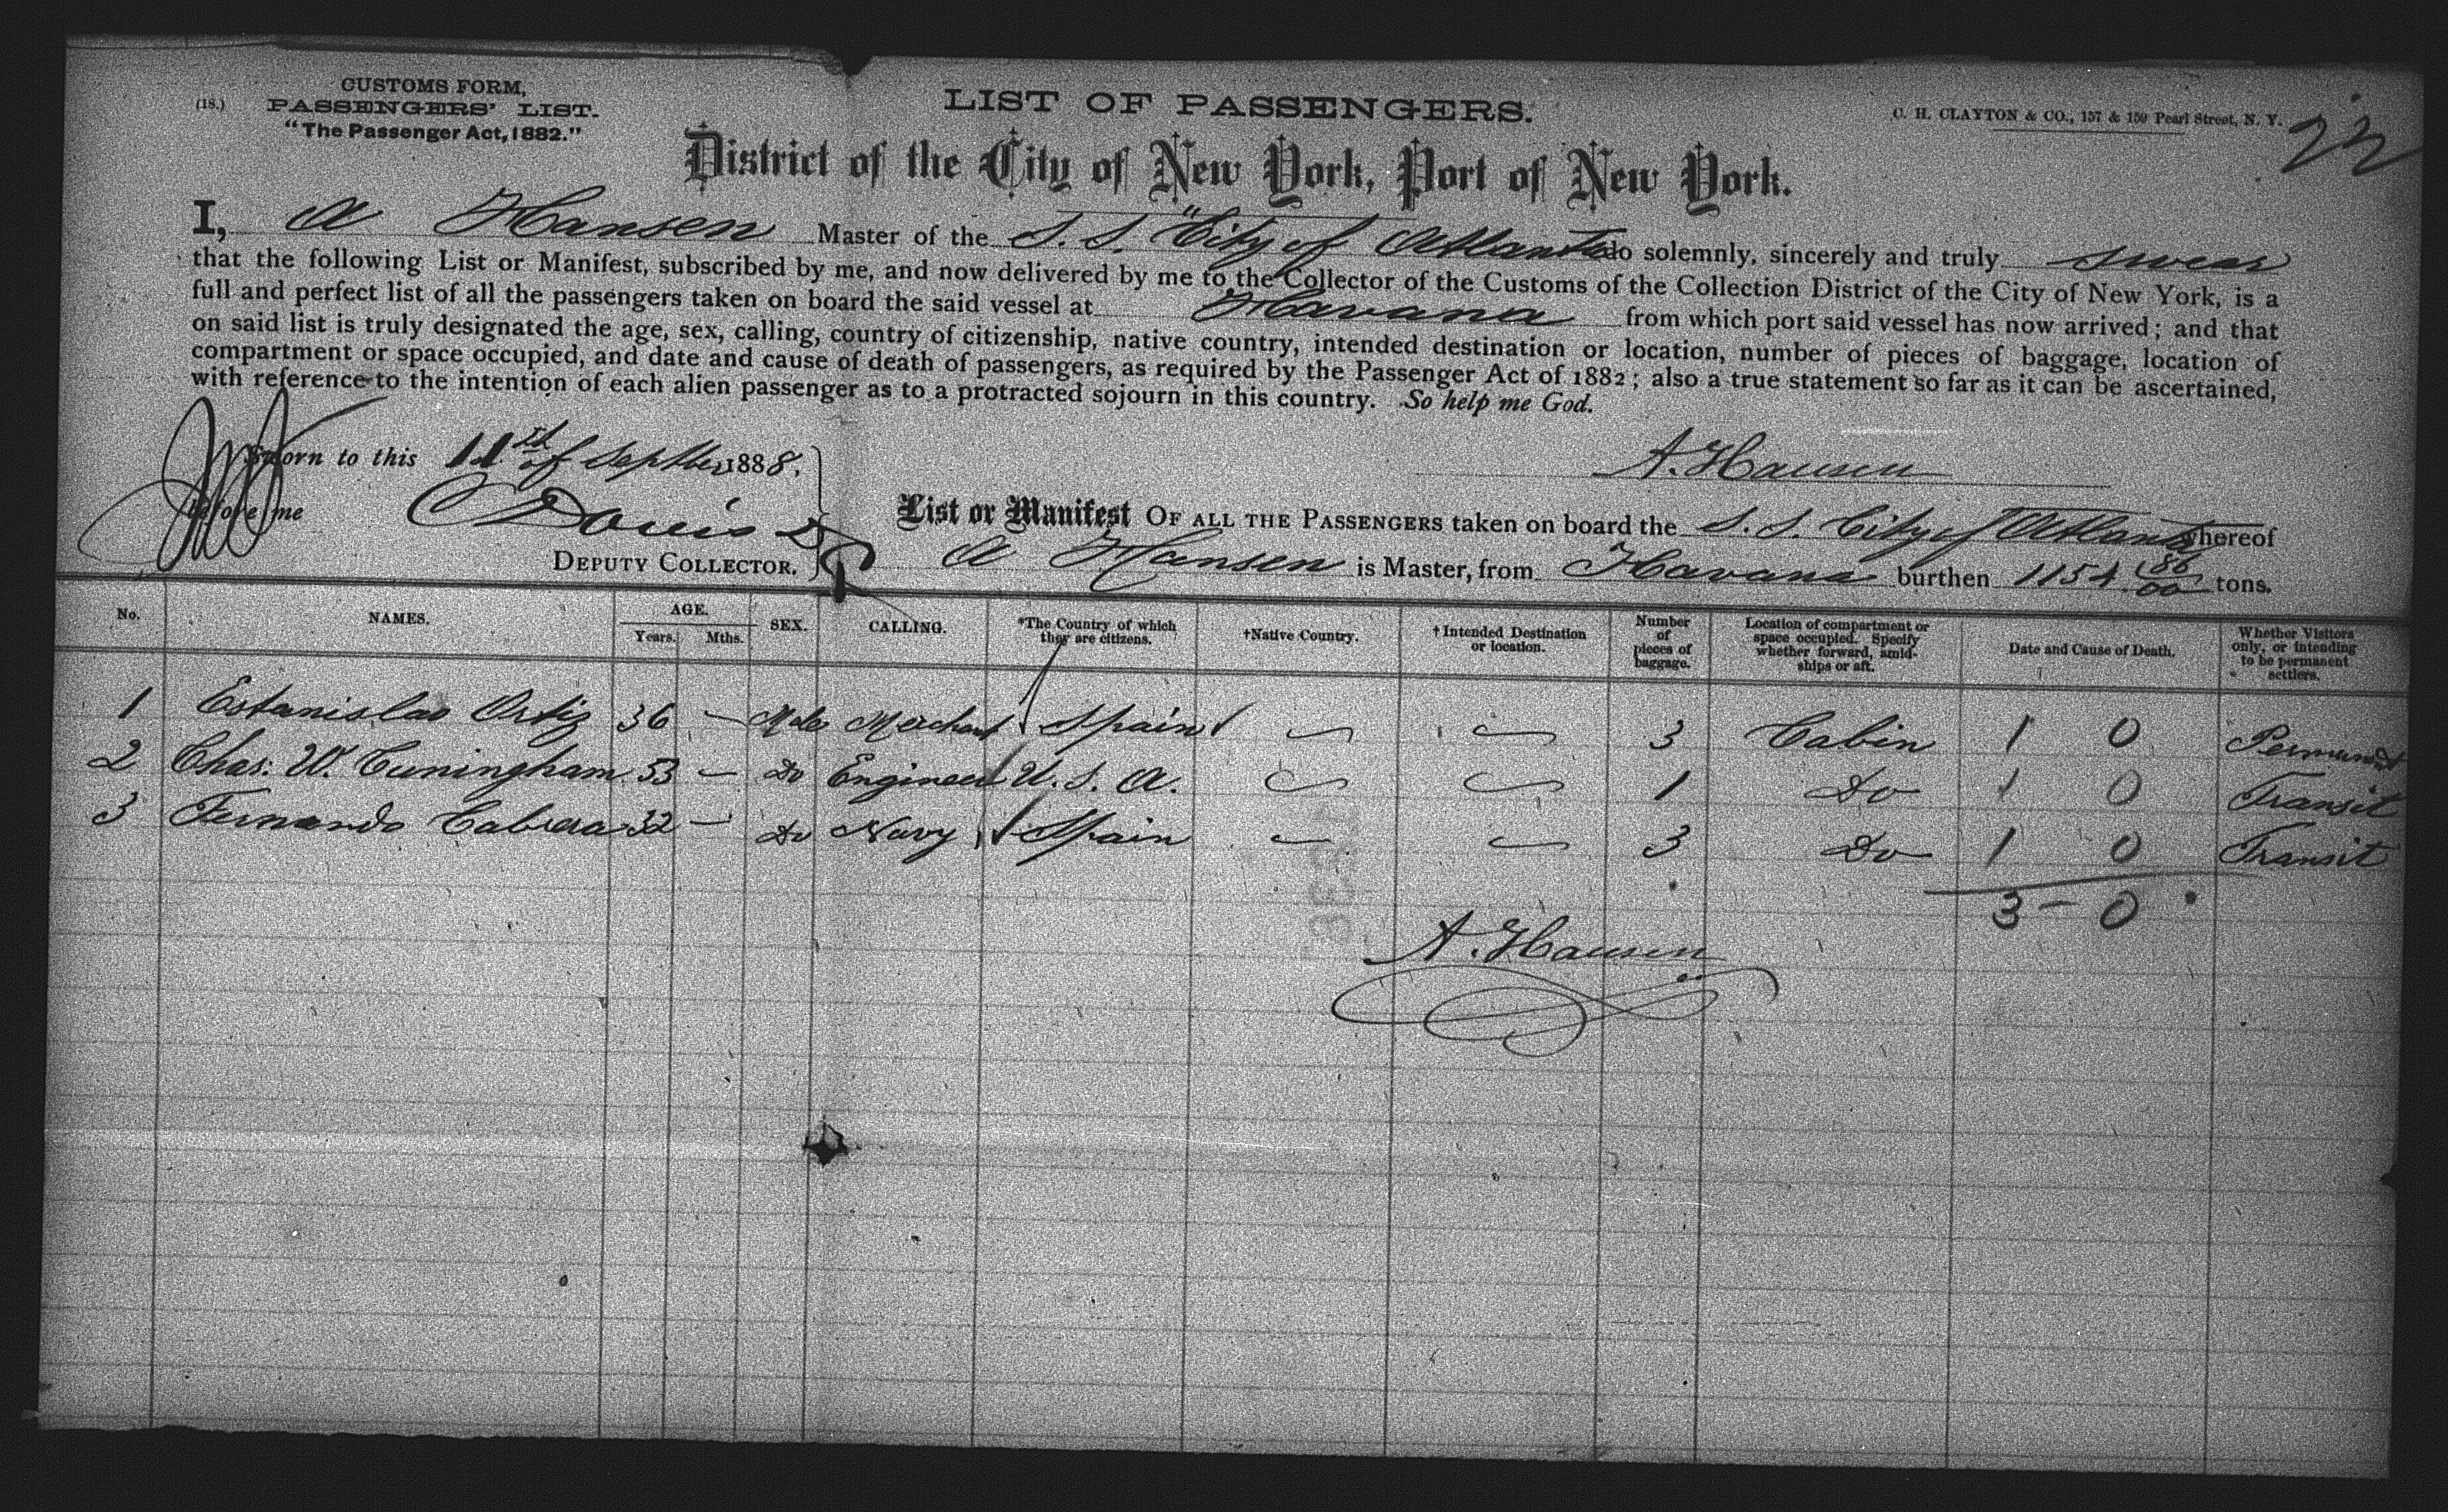 CUSTOMS FORM,
(18.) PASSENGERS' LIST.
"The Passenger Act, 1882."
LIST OF PASSENGERS.
C. H. CLAYTON & CO., 157 & 159 Pearl Street, N. Y.
22
District of the City of New York, Port of New York.
I, A Hansen Master of the S. S. "City of Atlanta do solemnly, sincerely and truly swear
that the following List or Manifest, subscribed by me, and now delivered by me to the Collector of the Customs of the Collection District of the City of New York, is a
full and perfect list of all the passengers taken on board the said vessel at Havana from which port said vessel has now arrived; and that
on said list is truly designated the age, sex, calling, country of citizenship, native country, intended destination or location, number of pieces of baggage, location of
compartment or space occupied, and date and cause of death of passengers, as required by the Passenger Act of 1882; also a true statement so far as it can be ascertained,
with reference to the intention of each alien passenger as to a protracted sojourn in this country. So help me God.
Sworn to this 11th of Septber 1888,
A. Hansen
before me Davis
DEPUTY COLLECTOR.
List or Manifest OF ALL THE PASSENGERS taken on board the S. S. City of Atlanta whereof
A Hansen is Master, from Havana burthen 1154 86/00 tons.
No. NAMES. AGE. Years. Mths. SEX. CALLING. *The Country of which they are citizens. †Native Country. †Intended Destination or location. Number of pieces of baggage. Location of compartment or space occupied. Specify whether forward, amidships or aft. Date and Cause of Death. Whether Visitors only, or intending to be permanent settlers.
1 Estanislao Ortiz 36 — Male Merchant Spain 3 Cabin 1 0 Permanent
2 Chas: W. Cuningham 53 — Do Engineer U. S. A. 1 Do 1 0 Transit
3 Fernando Cabrera 32 — Do Navy Spain 3 Do 1 0 Transit
3 — 0
A. Hansen